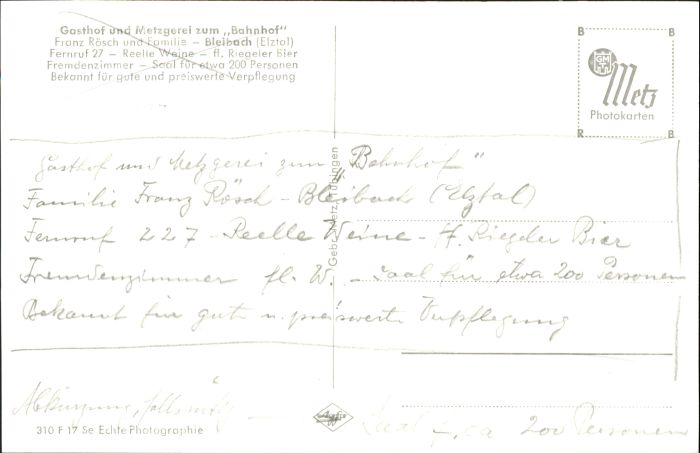 Gasthof und Metzgerei zum „Bahnhof"
Franz Rösch und Familie – Bleibach (Elztal)
Fernruf 27 – Reelle Weine – ff. Riegeler Bier
Fremdenzimmer – Saal für etwa 200 Personen
Bekannt für gute und preiswerte Verpflegung
B B
GMT
Metz
Photokarten
R B
Gasthof und Metzgerei zum „Bahnhof"
Familie Franz Rösch - Bleibach (Elztal)
Fernruf 227 - Reelle Weine - ff. Riegeler Bier
Fremdenzimmer fl. W. - Saal für etwa 200 Personen
Bekannt für gute u. preiswerte Verpflegung
Gebr. Metz, Tübingen
Abkürzung, falls nötig — Saal f. ca 200 Personen
310 F 17 Se Echte Photographie
Agfa